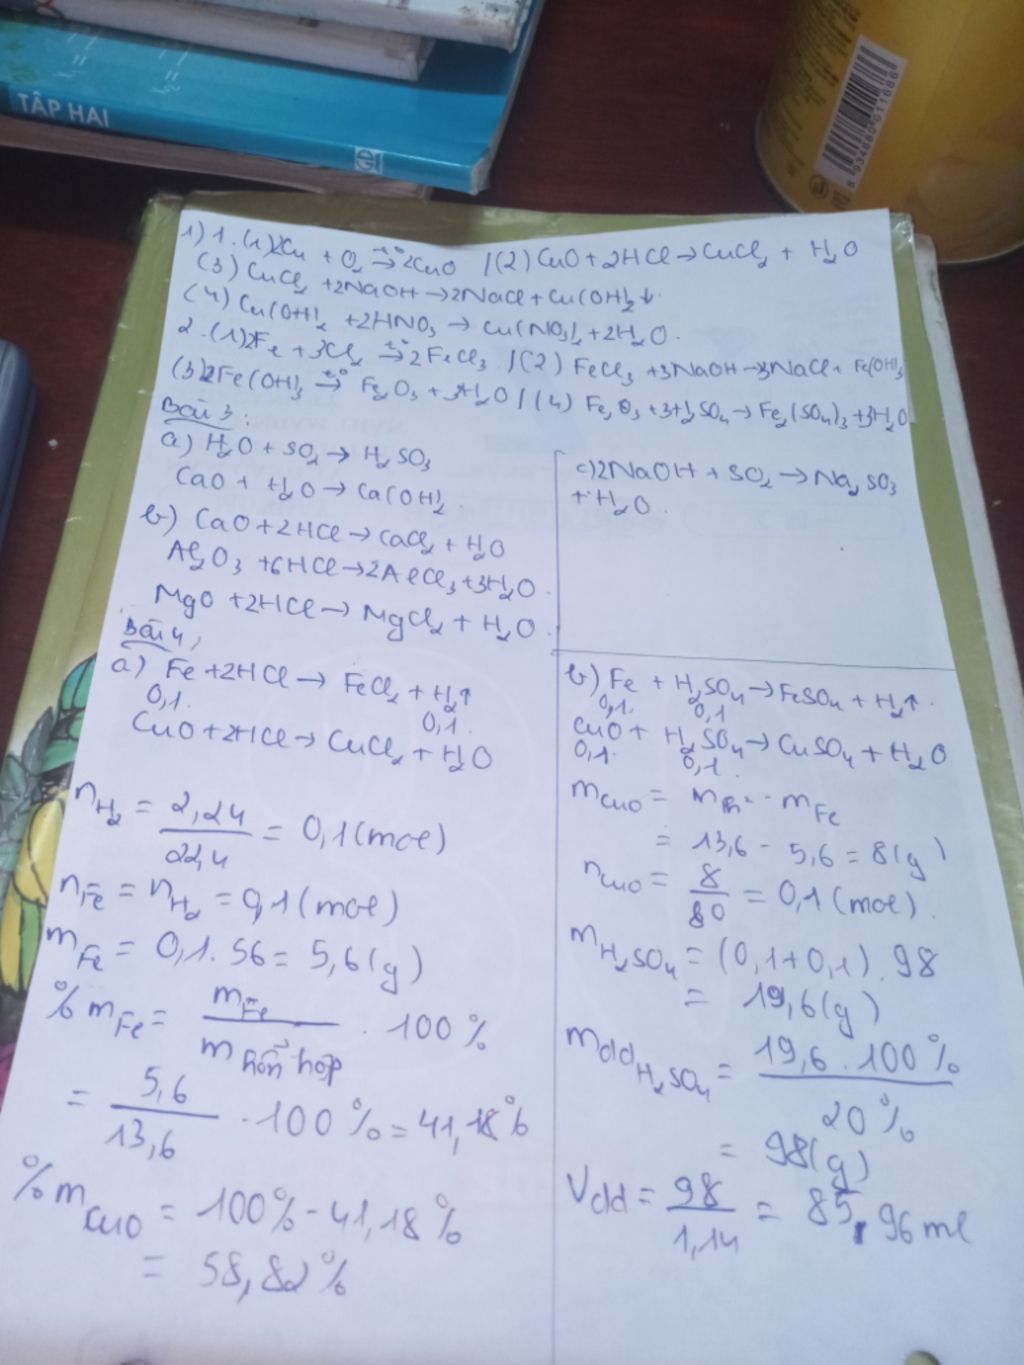 TẬP HAI
GD
8 934680 011686
1) 1. (1) 2Cu + O₂ →t° 2CuO / (2) CuO + 2HCl → CuCl₂ + H₂O
(3) CuCl₂ + 2NaOH → 2NaCl + Cu(OH)₂↓.
(4) Cu(OH)₂ + 2HNO₃ → Cu(NO₃)₂ + 2H₂O.
2. (1) 2Fe + 3Cl₂ →t° 2FeCl₃ / (2) FeCl₃ + 3NaOH → 3NaCl + Fe(OH)₃
(3) 2Fe(OH)₃ →t° Fe₂O₃ + 3H₂O / (4) Fe₂O₃ + 3H₂SO₄ → Fe₂(SO₄)₃ + 3H₂O
Bài 3:
a) H₂O + SO₂ → H₂SO₃
CaO + H₂O → Ca(OH)₂
b) CaO + 2HCl → CaCl₂ + H₂O
Al₂O₃ + 6HCl → 2AlCl₃ + 3H₂O.
MgO + 2HCl → MgCl₂ + H₂O.
c) 2NaOH + SO₂ → Na₂SO₃
+ H₂O.
Bài 4,
a) Fe + 2HCl → FeCl₂ + H₂↑
0,1. 0,1.
CuO + 2HCl → CuCl₂ + H₂O
nH₂ = 2,24/22,4 = 0,1 (mol)
nFe = nH₂ = 0,1 (mol)
mFe = 0,1. 56 = 5,6 (g)
% mFe = mFe/m hỗn hợp . 100 %
= 5,6/13,6 . 100 % = 41,18 %
% mCuO = 100% - 41,18 %
= 58,82 %
b) Fe + H₂SO₄ → FeSO₄ + H₂↑.
0,1. 0,1
CuO + H₂SO₄ → CuSO₄ + H₂O
0,1. 0,1.
mCuO = m - mFe
= 13,6 - 5,6 = 8 (g)
nCuO = 8/80 = 0,1 (mol).
mH₂SO₄ = (0,1 + 0,1) . 98
= 19,6 (g)
mddH₂SO₄ = 19,6 . 100 %/20 %
= 98 (g)
Vdd = 98/1,14 = 85,96 ml